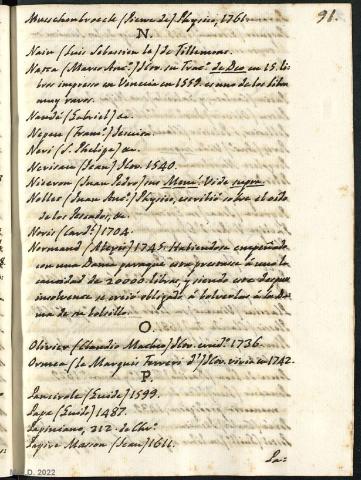 91.
Musschenbroeck (Pierre de) Physico, 1761.
N.
Nain (Luis Sebastien le) de Tillemons.
Natta (Marco Anto.) Jlov. su Trac.º de Deo en 15. li-
bros impresso en Venecia en 1559. es uno de los libros
muy raros.
Naudé (Gabriel) &c.
Negeu (Franco.)
Neri (S. Phelipe) &c.
Nevisan (Jean) Jlov. 1540.
Niceron (Juan Pedro) sus Memé. Vide supra.
Nollet (Juan Anto.) Physico, escribió sobre el oido
de los Pescados, &c.
Noris (Cardl.) 1704.
Normand (Alexis) 1745. Haviendo
con una Dama para que
cantidad de 20000. libras, y siendo este despues
insolvense se creió obligado a bolverlas a la Da-
ma de su bolsillo.
O.
Olivier (Claudio Matheo) Jlov. erudto. 1736.
Ormea (le Marquis Ferrero d') Jlov. vivia en 1742.
P.
Pancirole (Guide) 1599.
Pape (Guido) 1487.
Papiniano, 212. de Chro.
Papire Masson (Jean) 1611.
Pa=
D. 2022